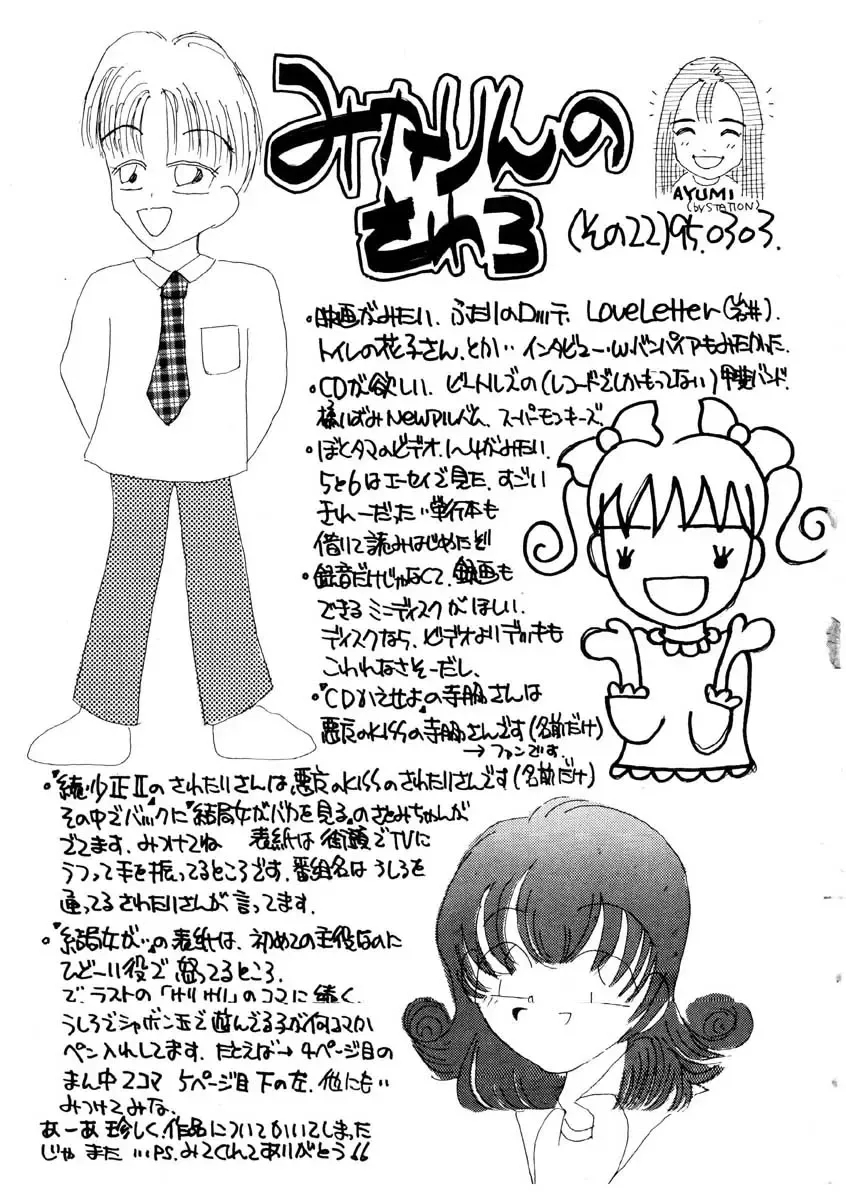 みなりんの
さわ3
AYUMI
(by STATION)
(その22)95.0303.
・映画がみたい、ふたりのロッテ、LoveLetter(岩井)、
トイレの花子さん、とか‥インタビュー・w・バンパイアもみたかった。
・CDが欲しい。ビートルズの(レコードでしかもってない)甲斐バンド、
NEWアルバム、スーパーモンキーズ。
・ぼくタマのビデオ1〜4がみたい。
5と6はエーセイで見た。すごい
きれーだった‥単行本も
借りて読みはじめたぞ
・録音だけじゃなくて、録画も
できるミニディスクがほしい。
ディスクなら、ビデオよりデッキも
こわれなさそーだし。
・『CDかえせよ』の寺脇さんは
悪友のKISSの寺脇さんです(名前だけ)
→ファンです。
・『続・少正II』のさわたりさんは悪友のKISSのさわたりさんです(名前だけ)
その中でバックに『結局女がバカを見る』のさとみちゃんが
でてます。みつけてね 表紙は街頭でTVに
うつって手を振ってるところです。番組名はうしろを
通ってるさわたりさんが言ってます。
・『結局女が‥』の表紙は、初めての主役なのに
ひどーい役で怒ってるところ。
で、ラストの「けりけり」のコマに続く。
うしろでシャボン玉で遊んでる子が何コマか
ペン入れしてます。たとえば→4ページ目の
まん中2コマ 5ページ目下の左。他にも‥
みつけてみな。
あーあ珍しく、作品についてかいてしまった
じゃ また …PS.みてくれてありがとう!!